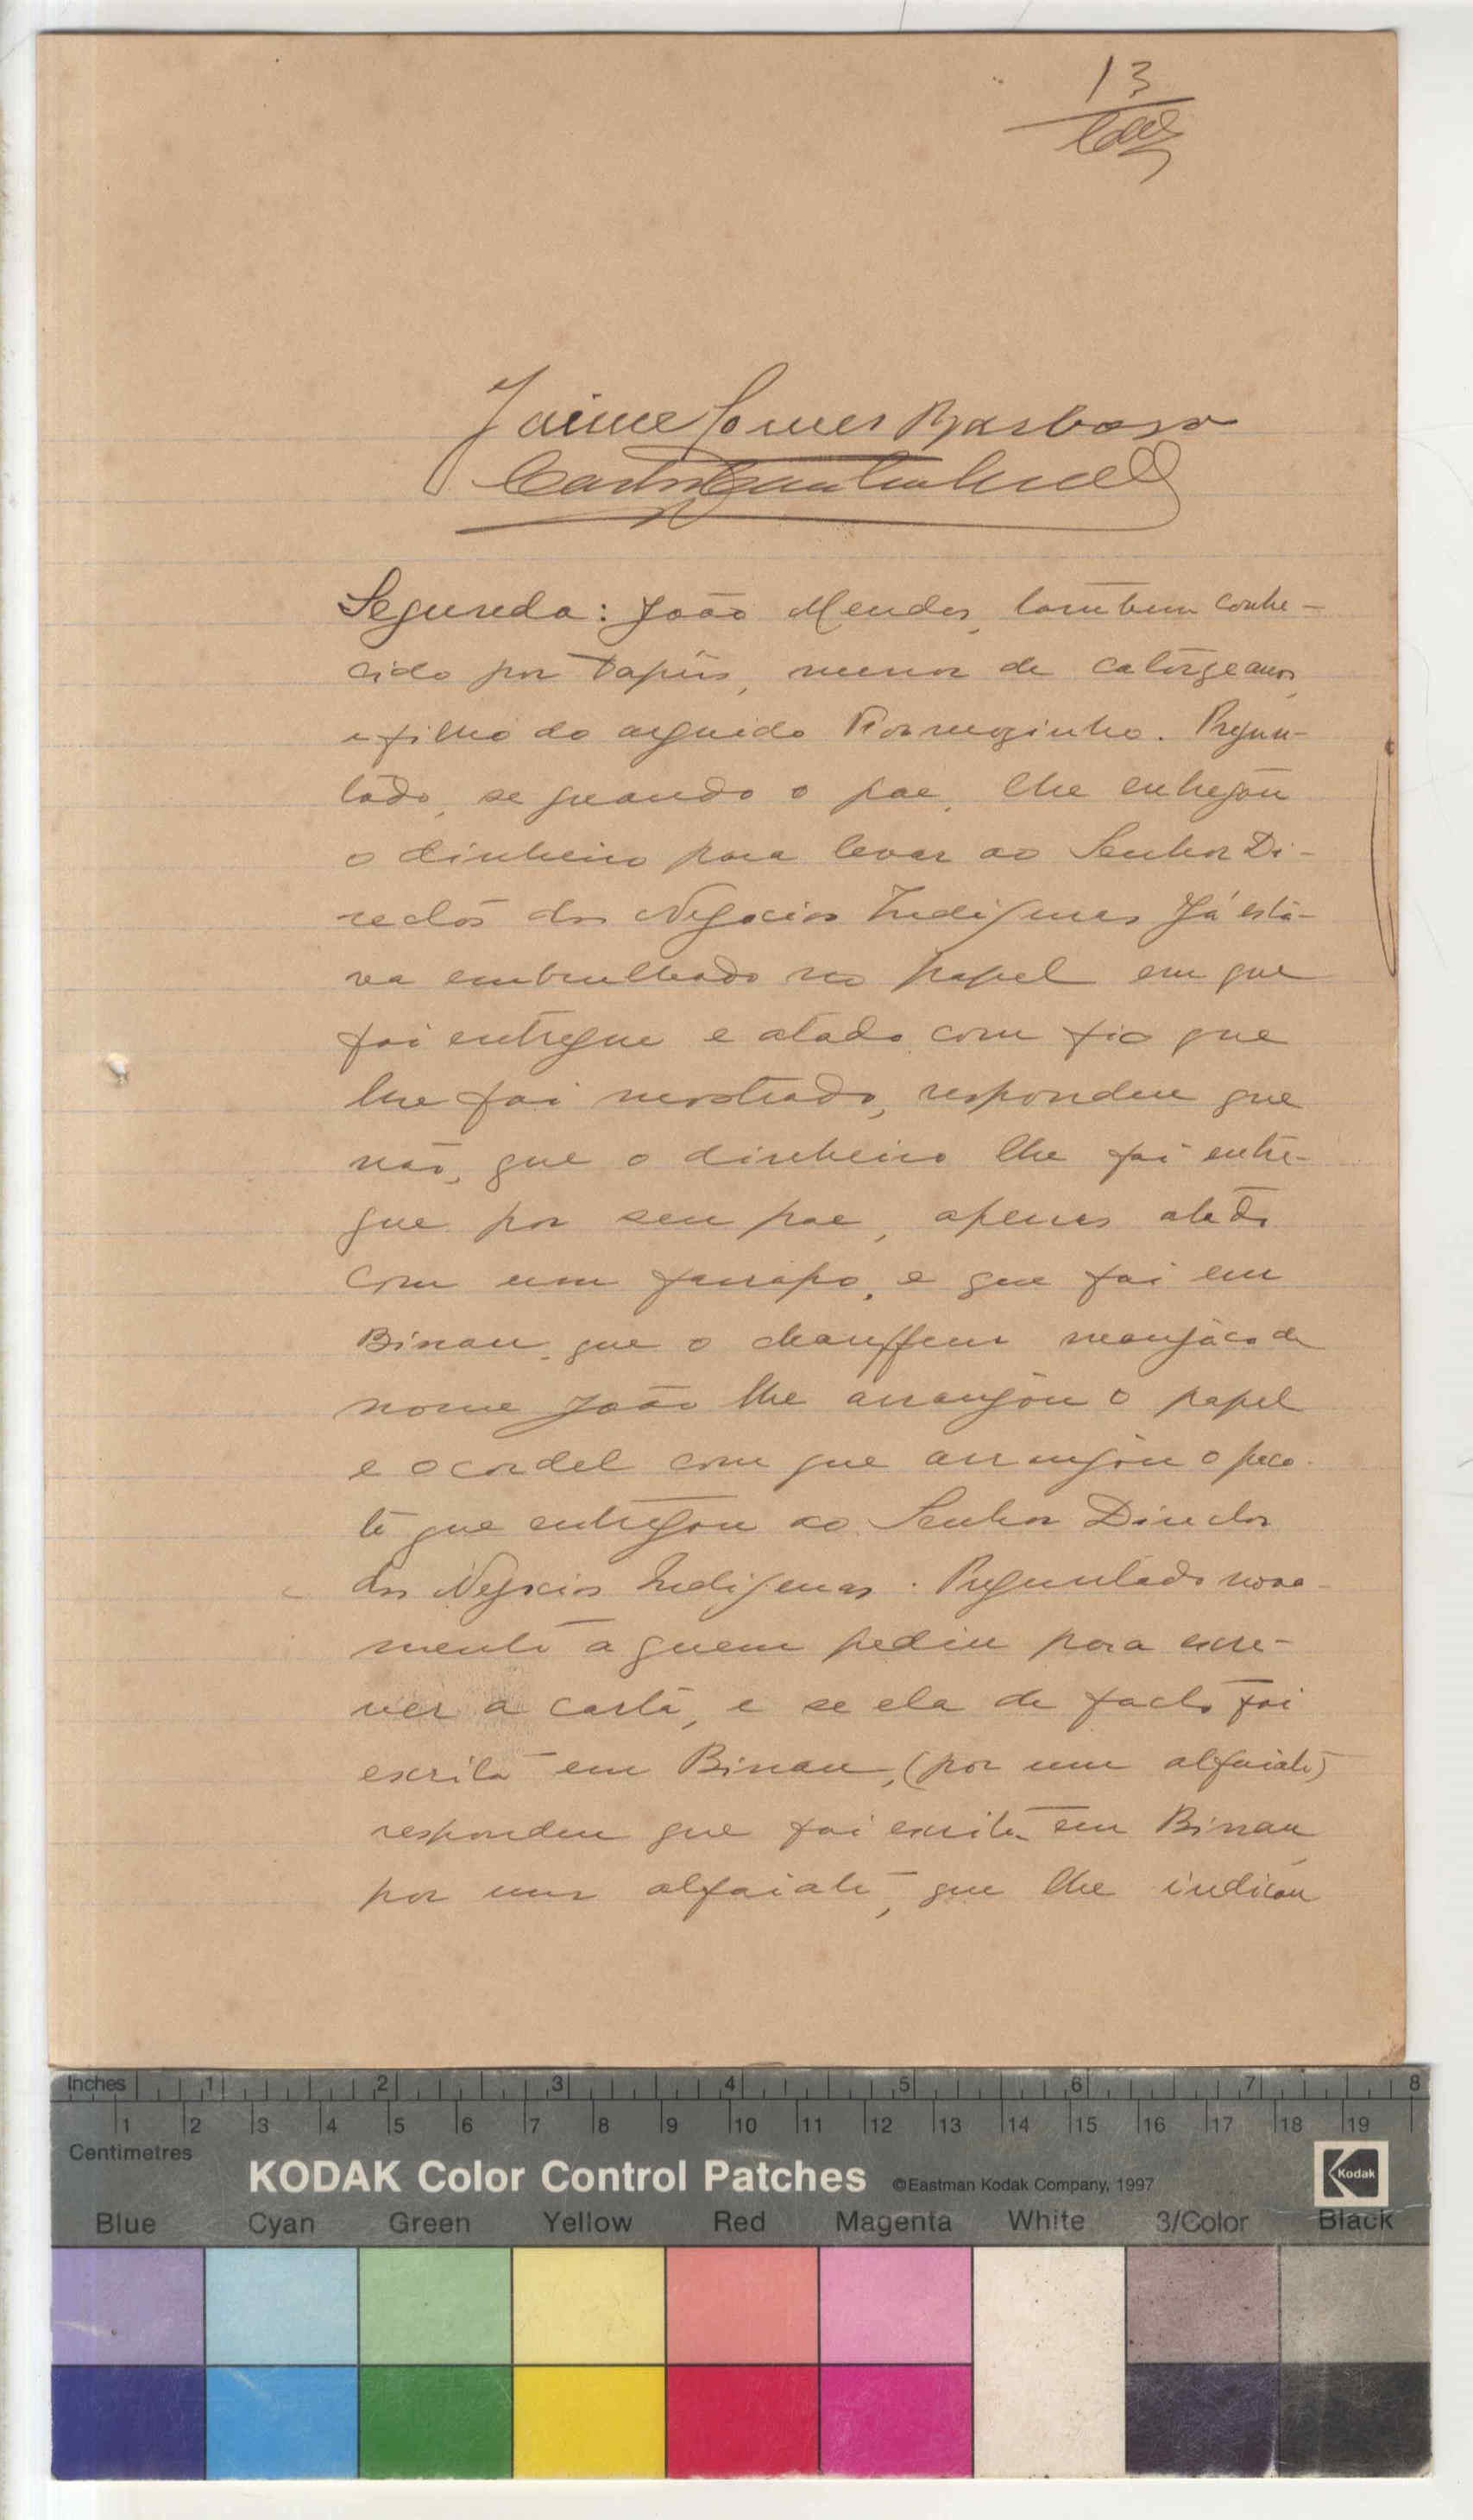 13
Jaime Gomes Barbosa
Segunda: João Mendes, tambem conhe-
cido por Dapús, menor de catorze anos,
e filho do arguido Formozinho. Pregun-
tado, se quando o pae, lhe entregou
o dinheiro para levar ao Senhor Di-
rector dos Negocios Indigenas Já esta-
va embrulhado no papel em que
foi entregue e atado com fio que
lhe foi mostrado, respondeu que
não, que o dinheiro lhe foi entre-
gue por seu pae, apenas atado
com um farrapo, e que foi em
Binau que o chauffeur manjaco de
nome João lhe arranjou o papel
e o cordel com que arranjou o paco-
te que entregou ao Senhor Director
dos Negocios Indigenas. Preguntado nova-
mente a quem pediu para escre-
ver a carta, e se ela de facto foi
escrita em Binau, (por um alfaiate)
respondeu que foi escrita em Binau,
por um alfaiate, que lhe indicou
Inches 1 2 3 4 5 6 7 8
1 2 3 4 5 6 7 8 9 10 11 12 13 14 15 16 17 18 19
Centimetres
KODAK Color Control Patches ©Eastman Kodak Company, 1997 Kodak
Blue Cyan Green Yellow Red Magenta White 3/Color Black